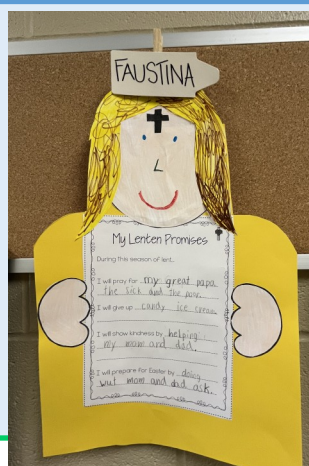 FAUSTINA
My Lenten Promises
During this season of lent...
I will pray for my great papa
the sick and the poor.
I will give up candy ice cream
I will show kindness by helping
my mom and dad.
I will prepare for Easter by doing
wut mom and dad ask.